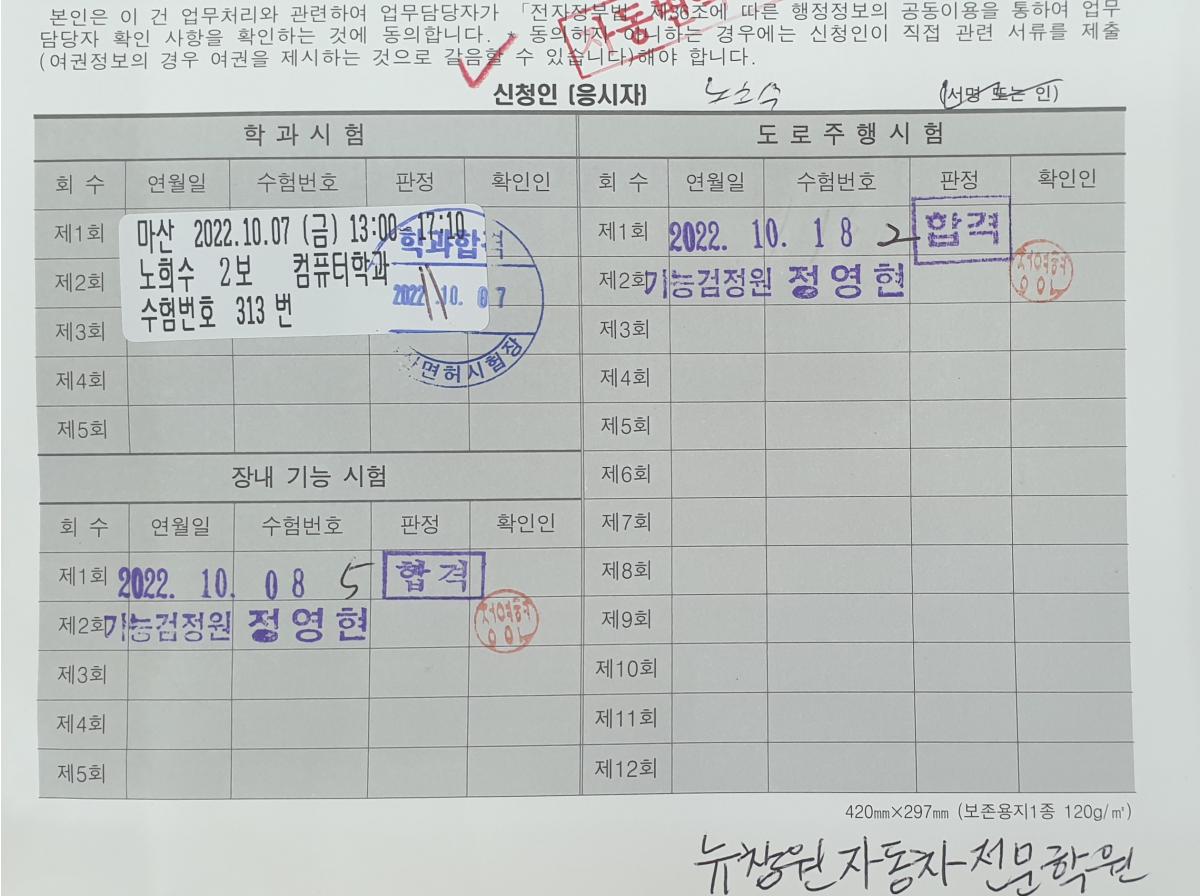 본인은 이 건 업무처리와 관련하여 업무담당자가 「전자정부법」 제36조에 따른 행정정보의 공동이용을 통하여 업무
담당자 확인 사항을 확인하는 것에 동의합니다. * 동의하지 아니하는 경우에는 신청인이 직접 관련 서류를 제출
(여권정보의 경우 여권을 제시하는 것으로 갈음할 수 있습니다)해야 합니다.
자동
신청인 (응시자) 노희수 (서명 또는 인)
학과시험
회 수 연월일 수험번호 판정 확인인
제1회
마산 2022.10.07 (금) 13:00-17:10
노희수 2보 컴퓨터학과
수험번호 313 번
학과합격
2022.10.07
면허시험장
제2회
제3회
제4회
제5회
장내 기능 시험
회 수 연월일 수험번호 판정 확인인
제1회 2022. 10. 08 5 합격
제2회 기능검정원 정영현
제3회
제4회
제5회
도로주행시험
회 수 연월일 수험번호 판정 확인인
제1회 2022. 10. 18 2 합격
제2회 기능검정원 정영현
제3회
제4회
제5회
제6회
제7회
제8회
제9회
제10회
제11회
제12회
420㎜×297㎜ (보존용지1종 120g/㎡)
뉴창원자동차전문학원